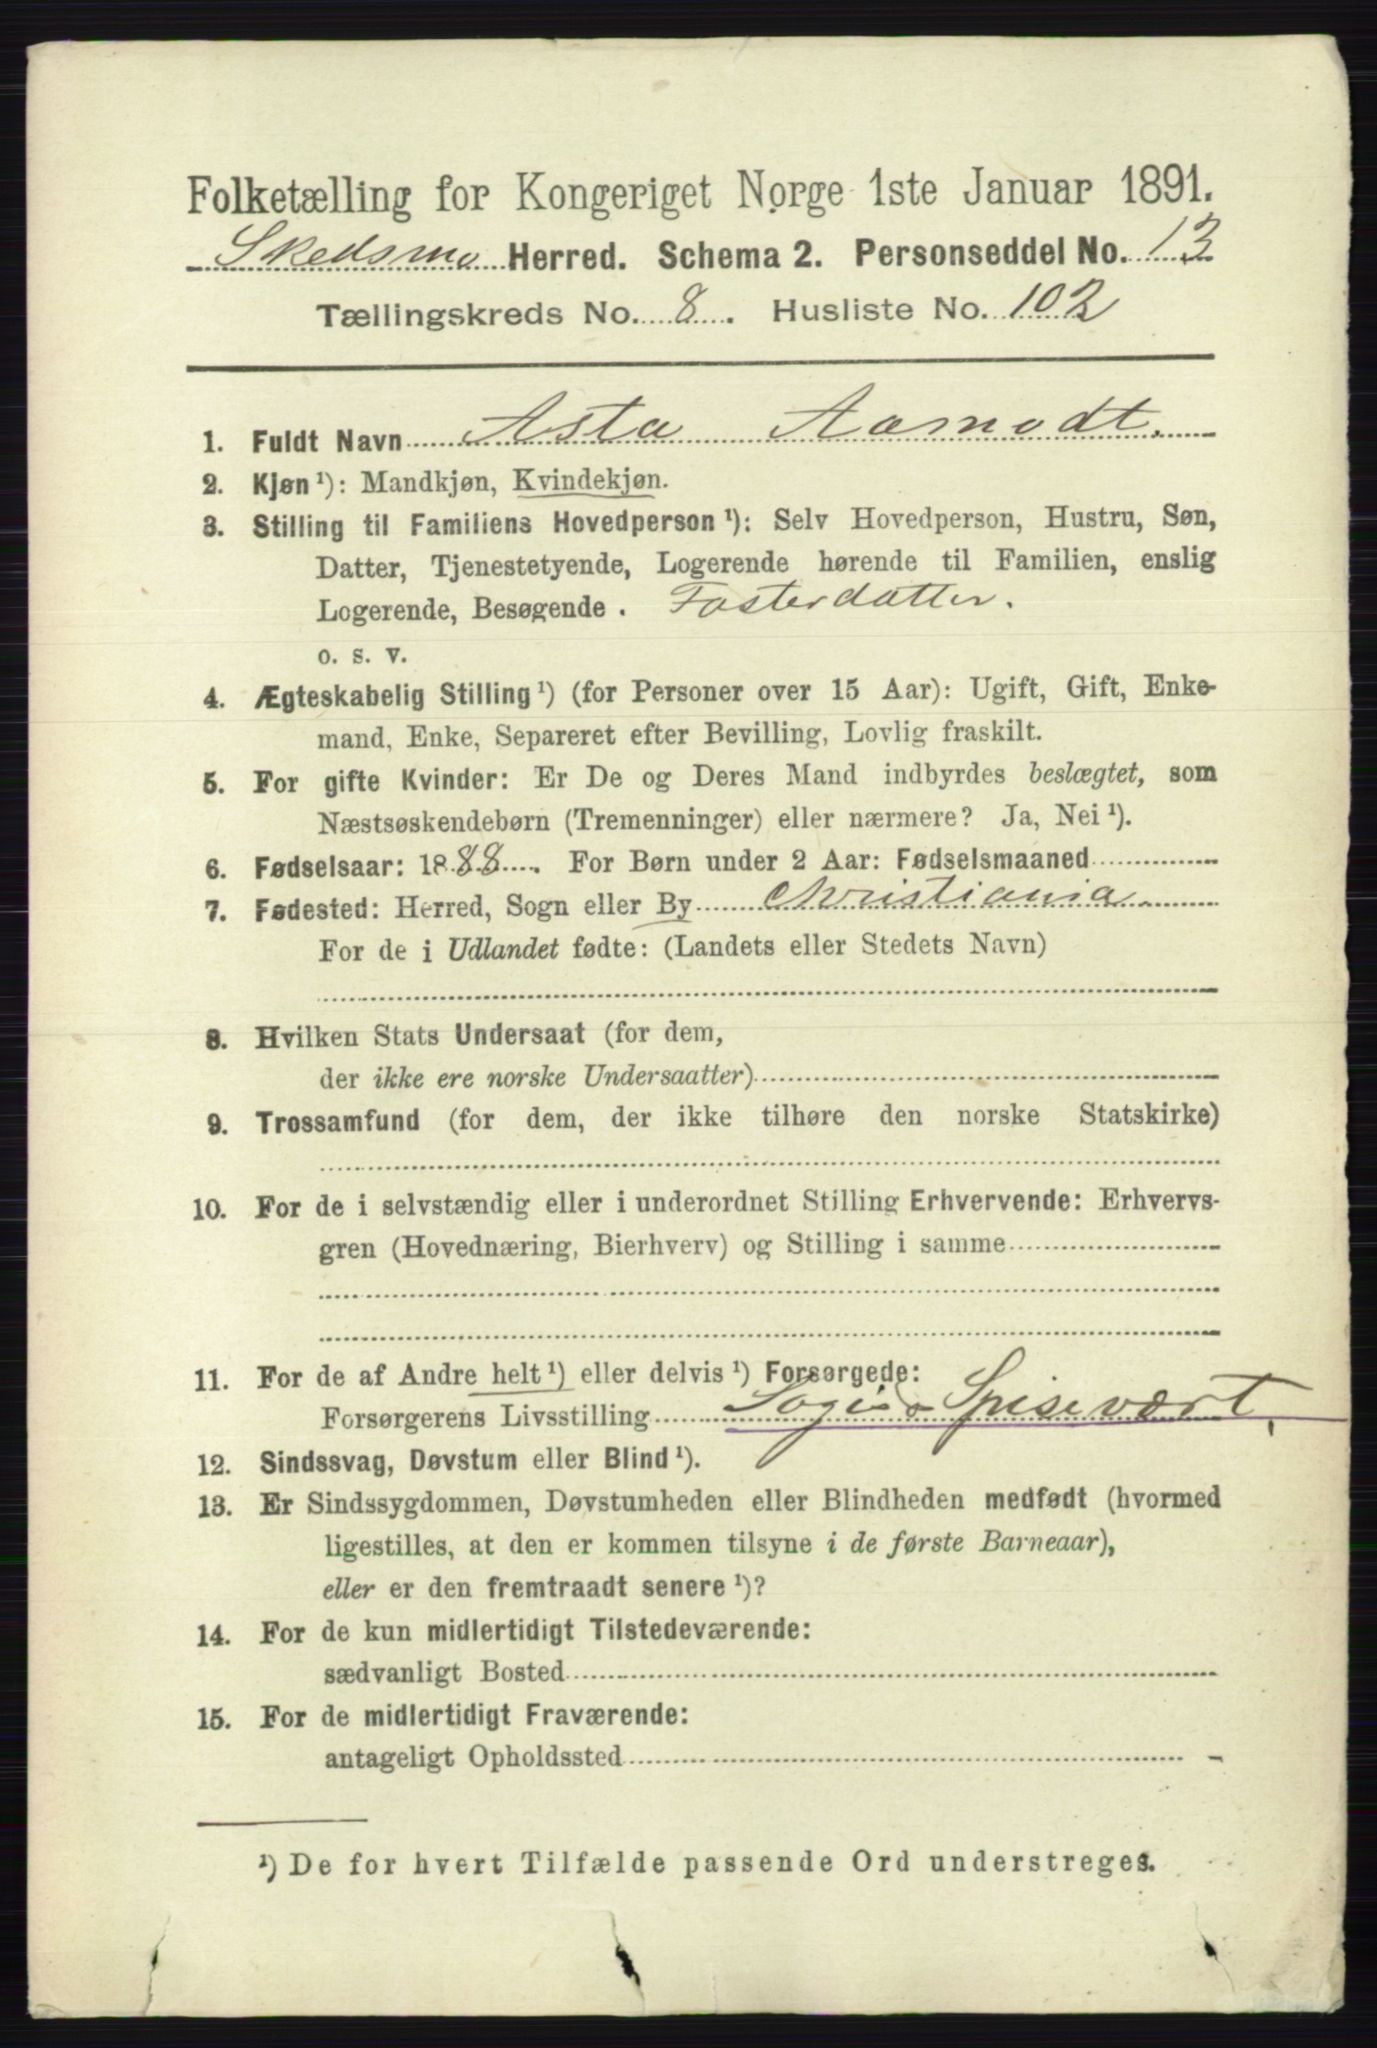 Folketælling for Kongeriget Norge 1ste Januar 1891.
Skedsmo Herred. Schema 2. Personseddel No. 13
Tællingskreds No. 8. Husliste No. 102
1. Fuldt Navn Asta Aamodt.
2. Kjøn ¹): Mandkjøn, Kvindekjøn.
3. Stilling til Familiens Hovedperson ¹): Selv Hovedperson, Hustru, Søn,
Datter, Tjenestetyende, Logerende hørende til Familien, enslig
Logerende, Besøgende . Fosterdatter.
o. s. v.
4. Ægteskabelig Stilling ¹) (for Personer over 15 Aar): Ugift, Gift, Enke-
mand, Enke, Separeret efter Bevilling, Lovlig fraskilt.
5. For gifte Kvinder: Er De og Deres Mand indbyrdes beslægtet, som
Næstsøskendebørn (Tremenninger) eller nærmere? Ja, Nei ¹).
6. Fødselsaar: 1888. For Børn under 2 Aar: Fødselsmaaned
7. Fødested: Herred, Sogn eller By Christiania.
For de i Udlandet fødte: (Landets eller Stedets Navn)
8. Hvilken Stats Undersaat (for dem,
der ikke ere norske Undersaatter)
9. Trossamfund (for dem, der ikke tilhøre den norske Statskirke)
10. For de i selvstændig eller i underordnet Stilling Erhvervende: Erhvervs-
gren (Hovednæring, Bierhverv) og Stilling i samme
11. For de af Andre helt ¹) eller delvis ¹) Forsørgede:
Forsørgerens Livsstilling Spisevært,
12. Sindssvag, Døvstum eller Blind ¹).
13. Er Sindssygdommen, Døvstumheden eller Blindheden medfødt (hvormed
ligestilles, at den er kommen tilsyne i de første Barneaar),
eller er den fremtraadt senere ¹)?
14. For de kun midlertidigt Tilstedeværende:
sædvanligt Bosted
15. For de midlertidigt Fraværende:
antageligt Opholdssted
¹) De for hvert Tilfælde passende Ord understreges.